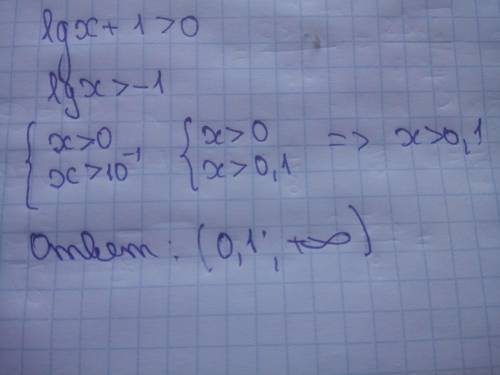 lgx + 1 > 0
lgx > -1
{ x > 0 x > 10⁻¹ { x > 0 x > 0,1 => x > 0,1
Ответ: (0,1; +∞)